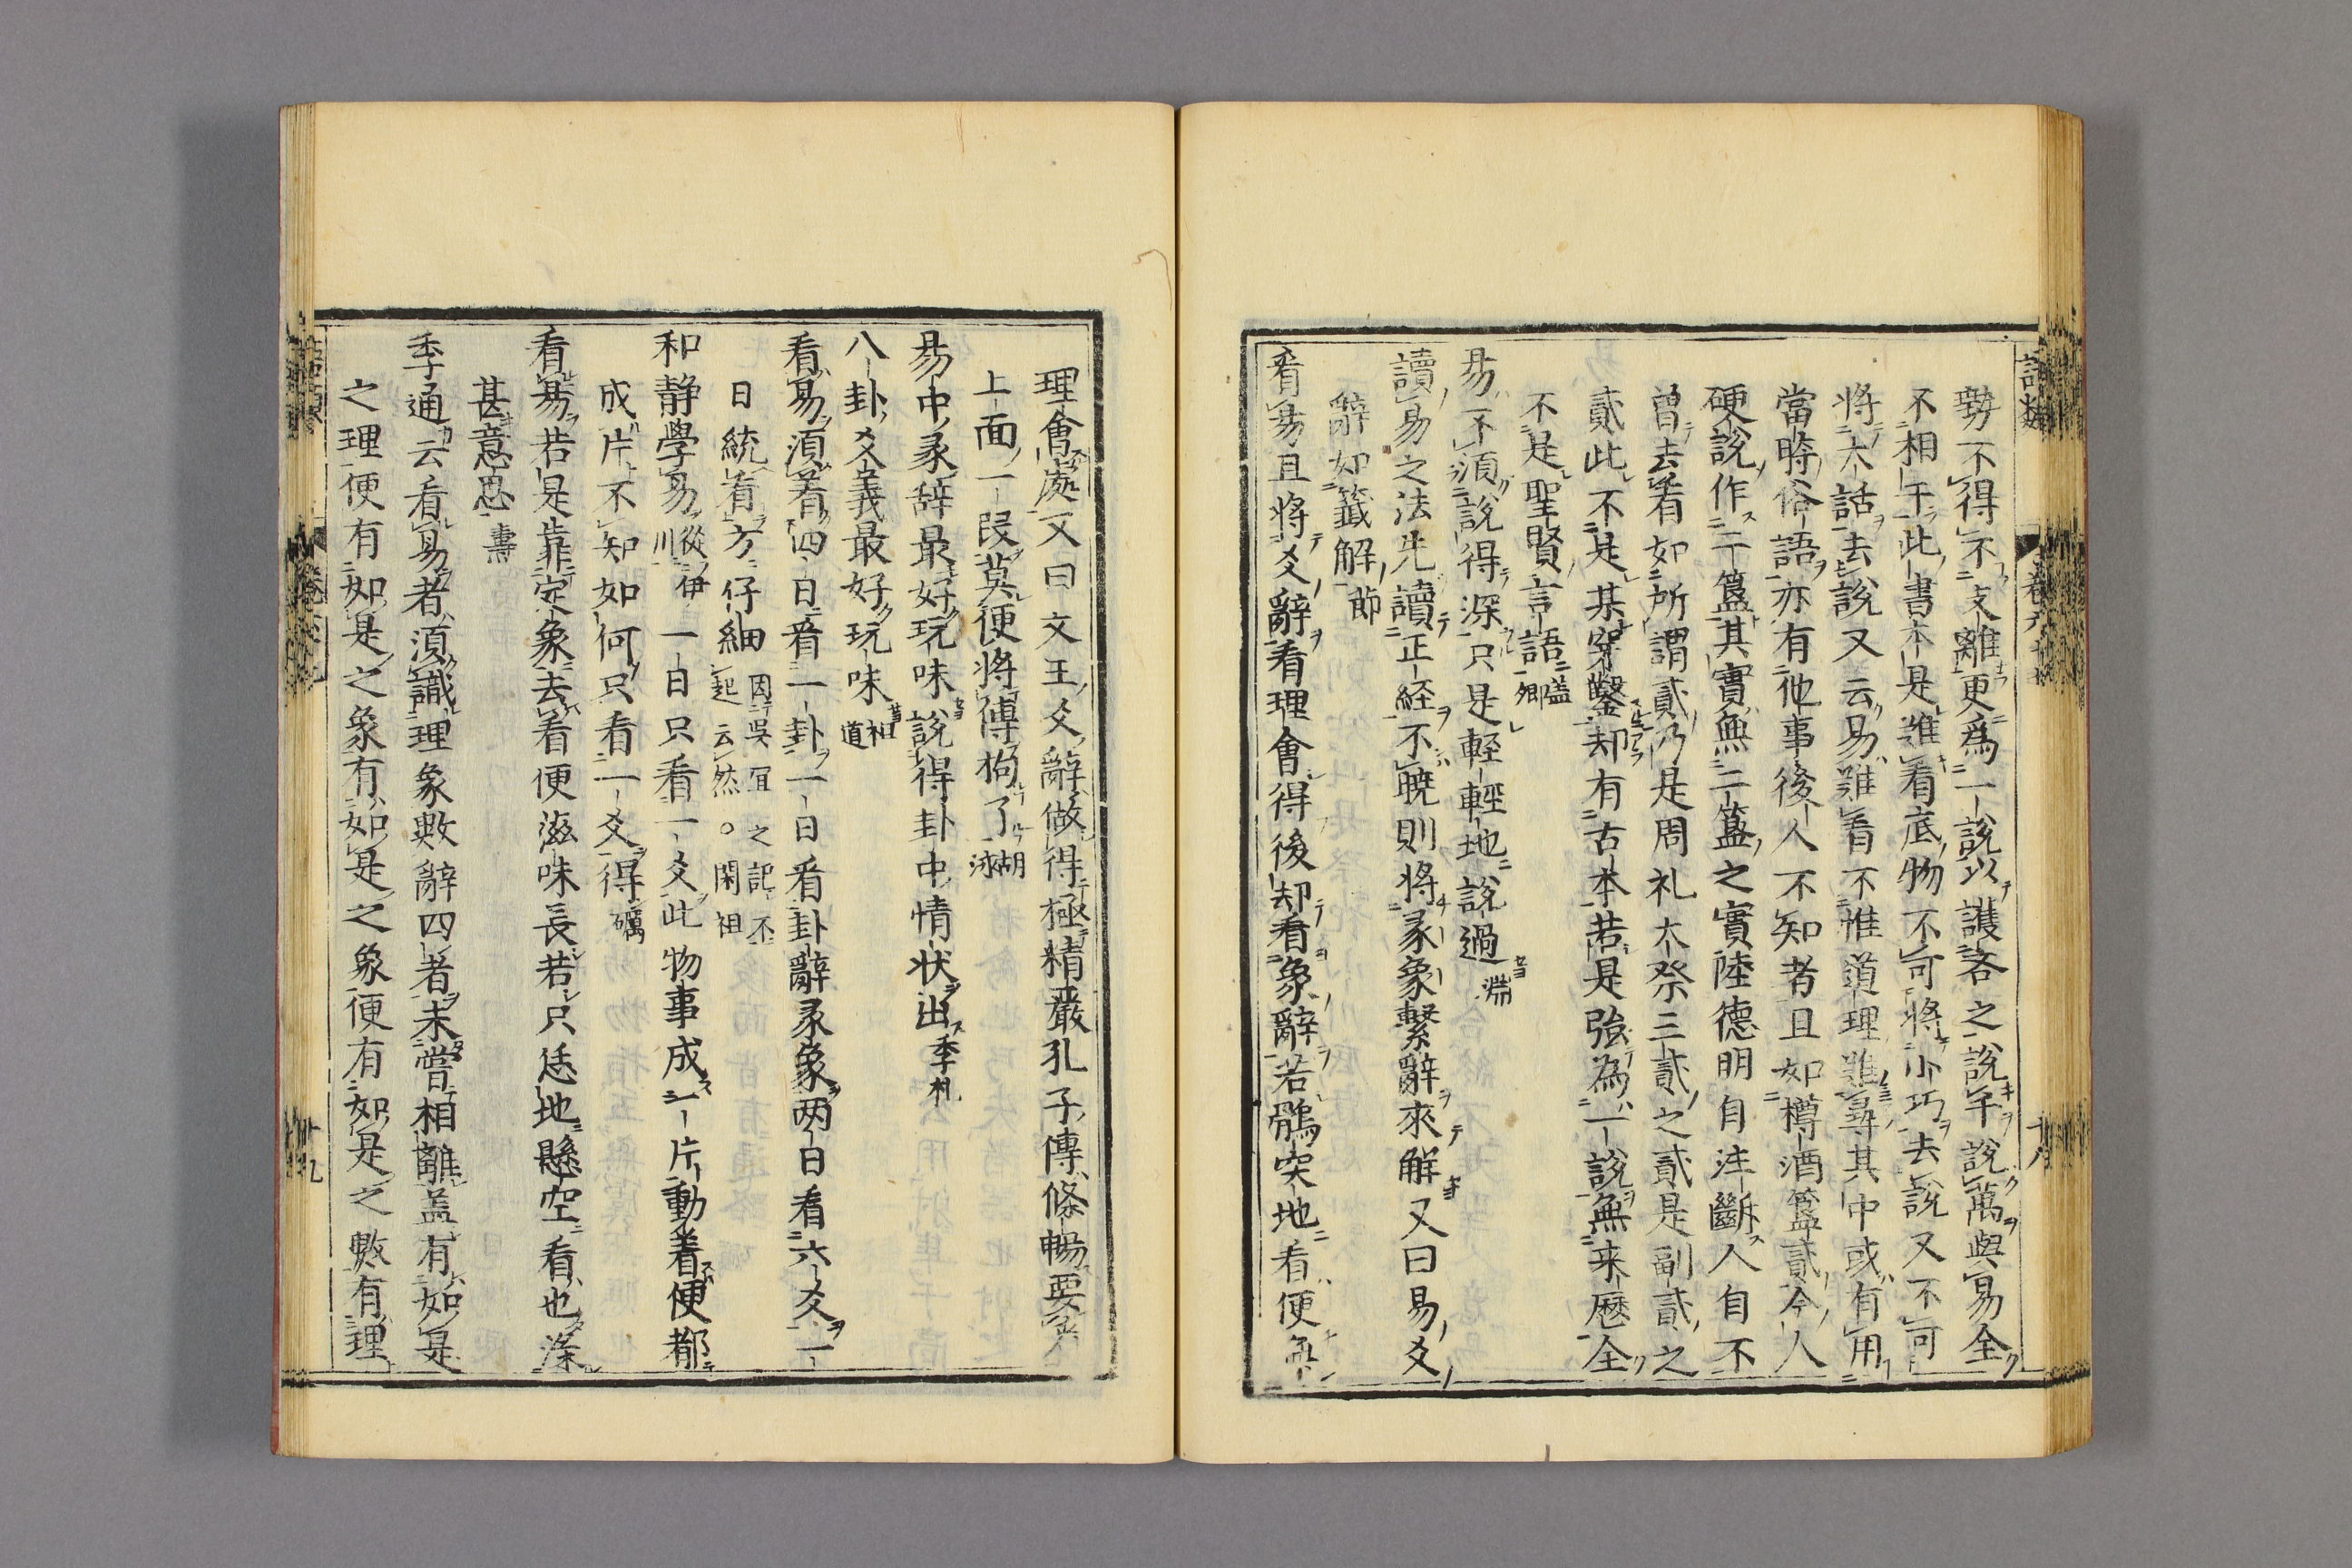 勢不得不支離更爲一說以護吝之說千說萬與易全
不相干此書本是難看底物不可將小巧去說又不可
將大話去說又云易難看不惟道理難尋其中或有用
當時俗語亦有他事後人不知者且如樽酒簋貳今人
硬說作二簋其實無二簋之實陸德明自注斷人自不
曾去看如所謂貳乃是周礼大祭三貳之貳是副貳之
貳此不是某穿鑿却有古本若是強為一說無来歷全
不是聖賢言語 㬊卿
易不須說得深只是輕輕地說過 淵
讀易之法先讀正経不曉則將彖象繫辭來解又曰易爻
辭如籤解 節
看易且將爻辭看理會得後却看象辭若鶻突地看便無
理會處又曰文王爻辭做得極精嚴孔子傳條暢要看
上面一段莫便將傳拘了 胡泳
易中彖辞最好玩味說得卦中情状出 季札
八卦爻義最好玩味 祖道
看易須着四日看一卦一日看卦辭彖象两日看六爻一
日統看方仔細 因吳宜之記不起云然○閎祖
和靜學易 從伊川 一日只看一爻此物事成一片動着便都
成片不知如何只看一爻得 礪
看易若是靠定象去看便滋味長若只恁地懸空看也涤
甚意思 燾
季通云看易者須識理象數辭四者未嘗相離盖有如是
之理便有如是之象有如是之象便有如是之數有理
語類
十九